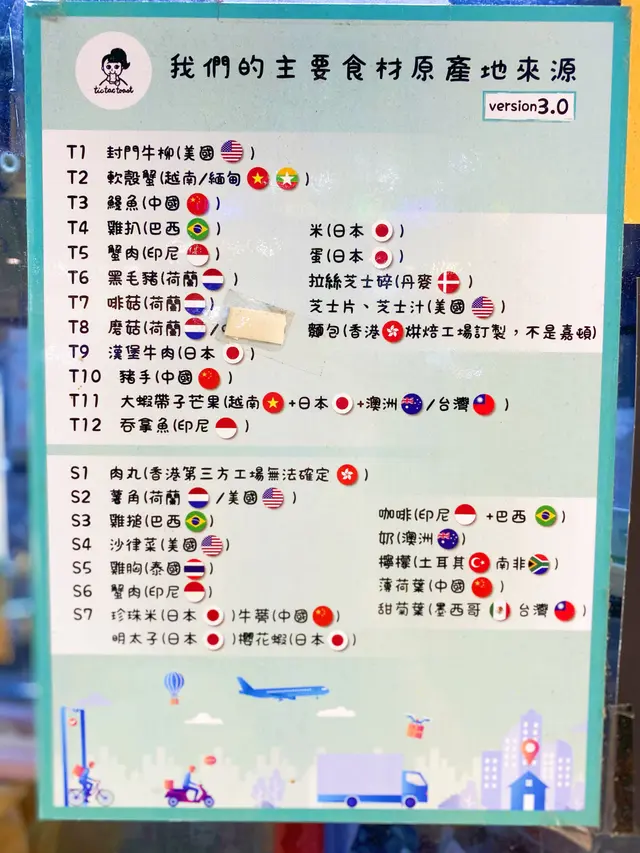 tic tac toast
我們的主要食材原產地來源
version3.0
T1 封門牛柳(美國)
T2 軟殼蟹(越南/緬甸)
T3 鰻魚(中國)
T4 雞扒(巴西)
T5 蟹肉(印尼)
T6 黑毛豬(荷蘭)
T7 啡菇(荷蘭)
T8 磨菇(荷蘭/
T9 漢堡牛肉(日本)
T10 豬手(中國)
T11 大蝦帶子芒果(越南+日本+澳洲/台灣)
T12 吞拿魚(印尼)
米(日本)
蛋(日本)
拉絲芝士碎(丹麥)
芝士片、芝士汁(美國)
麵包(香港烘焙工場訂製，不是嘉頓)
S1 肉丸(香港第三方工場無法確定)
S2 薯角(荷蘭/美國)
S3 雞搥(巴西)
S4 沙律菜(美國)
S5 雞胸(泰國)
S6 蟹肉(印尼)
S7 珍珠米(日本)牛蒡(中國)
明太子(日本)櫻花蝦(日本)
咖啡(印尼+巴西)
奶(澳洲)
檸檬(土耳其南非)
薄荷葉(中國)
甜菊葉(墨西哥台灣)